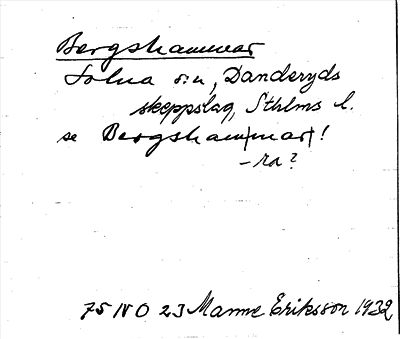 Bergshammar
Solna sn, Danderyds
skeppslag, Sthlms l.
se Bergshammar!
-ra?
75 NO 23 Manne Eriksson 1932